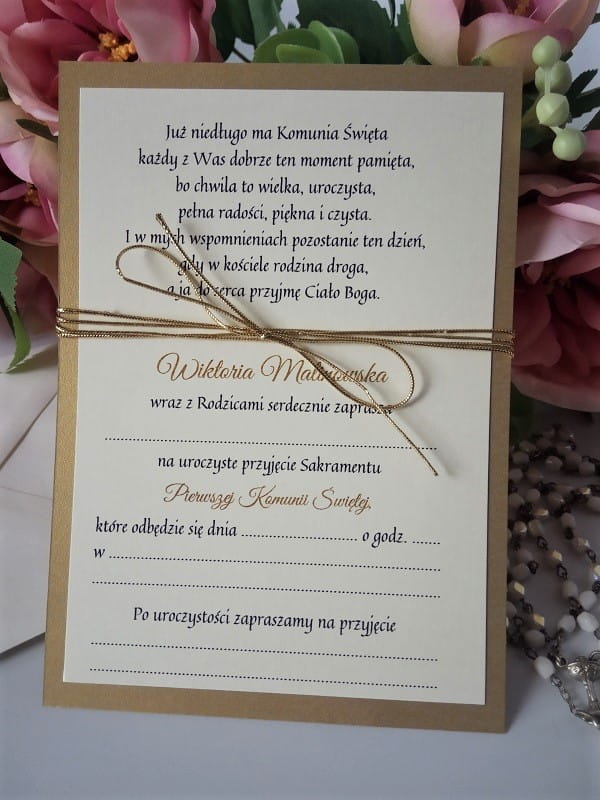 Już niedługo ma Komunia Święta
każdy z Was dobrze ten moment pamięta,
bo chwila to wielka, uroczysta,
pełna radości, piękna i czysta.
I w mych wspomnieniach pozostanie ten dzień,
gdy w kościele rodzina droga,
a ja do serca przyjmę Ciało Boga.
Wiktoria Malinowska
wraz z Rodzicami serdecznie zaprasza
................................................................
na uroczyste przyjęcie Sakramentu
Pierwszej Komunii Świętej,
które odbędzie się dnia ............................... o godz. .......
w ................................................................
................................................................
Po uroczystości zapraszamy na przyjęcie
................................................................
................................................................